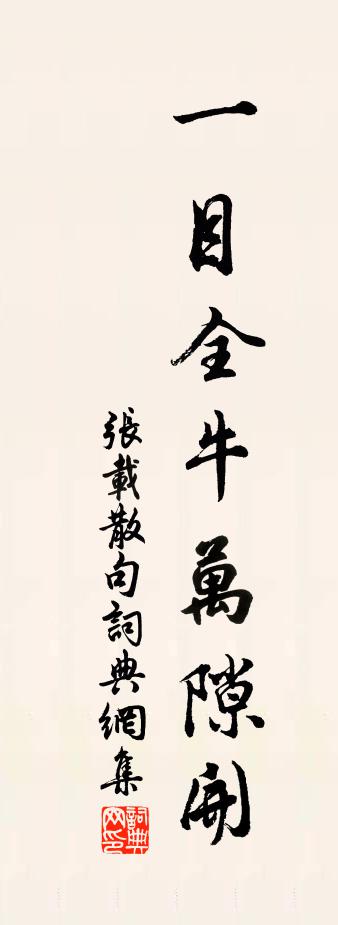 一目全牛萬隙開
張載散句詞典網集
詞典網印